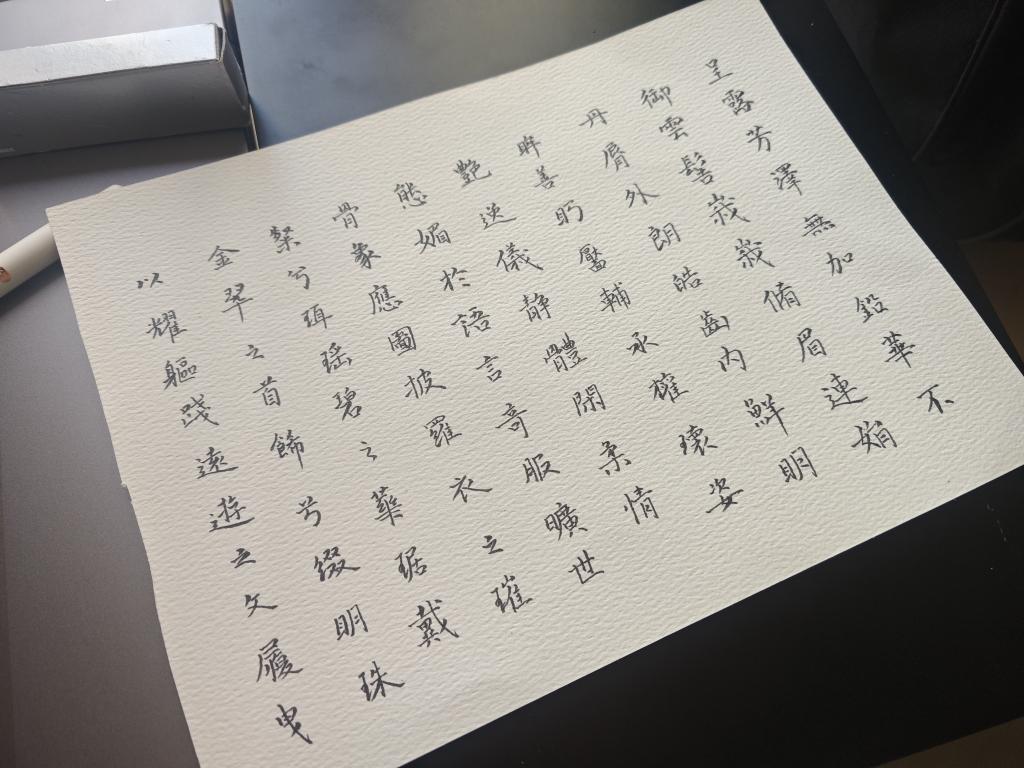 呈露芳澤無加鉛華不
御雲髻峩峩脩眉連娟
丹脣外朗皓齒内鮮明
眸善眄靨輔承權瓌姿
艷逸儀静體閑柔情
態媚於語言奇服曠世
骨象應圖披羅衣之璀
粲兮珥瑶碧之華琚戴
金翠之首餙兮綴明珠
以耀軀踐遠遊之文履曳